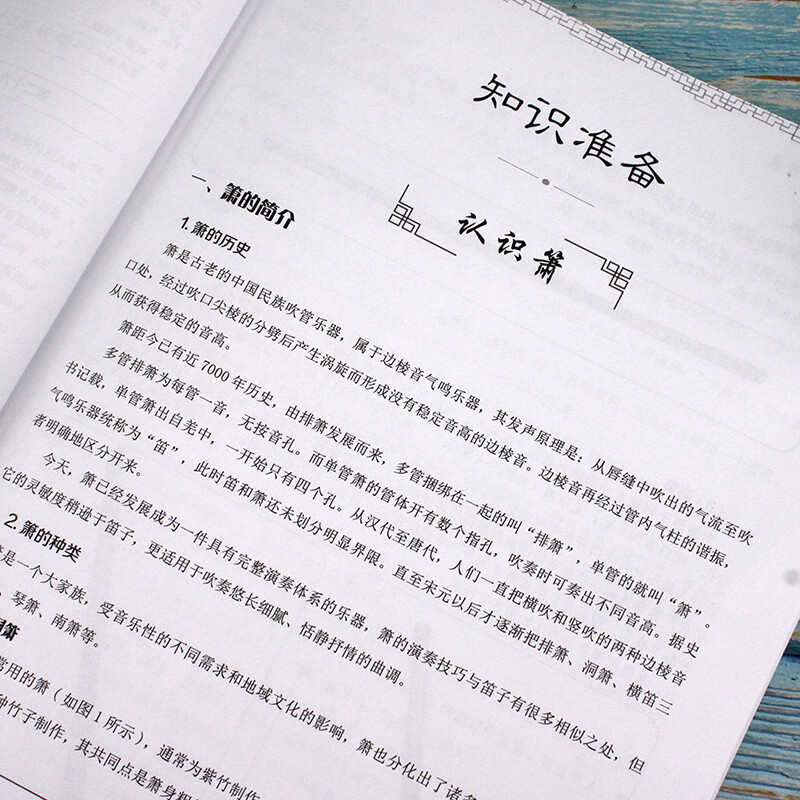 知识准备
认识箫
一、箫的简介
1. 箫的历史
箫是古老的中国民族吹管乐器，属于边棱音气鸣乐器，其发声原理是：从唇缝中吹出的气流至吹
口处，经过吹口尖棱的分劈后产生涡旋而形成没有稳定音高的边棱音。边棱音再经过管内气柱的谐振，
从而获得稳定的音高。
箫距今已有近7000年历史，由排箫发展而来，多管捆绑在一起的叫“排箫”，单管的就叫“箫”。
多管排箫为每管一音，无按音孔。而单管箫的管体开有数个指孔，吹奏时可奏出不同音高。据史
书记载，单管箫出自羌中，一开始只有四个孔。从汉代至唐代，人们一直把横吹和竖吹的两种边棱音
气鸣乐器统称为“笛”，此时笛和箫还未划分明显界限。直至宋元以后才逐渐把排箫、洞箫、横笛三
者明确地区分开来。
今天，箫已经发展成为一件具有完整演奏体系的乐器，箫的演奏技巧与笛子有很多相似之处，但
它的灵敏度稍逊于笛子，更适用于吹奏悠长细腻、恬静抒情的曲调。
2. 箫的种类
是一个大家族，受音乐性的不同需求和地域文化的影响，箫也分化出了诸多
、琴箫、南箫等。
箫
常用的箫（如图1所示），通常为紫竹制作
种竹子制作，其共同点是箫身粗